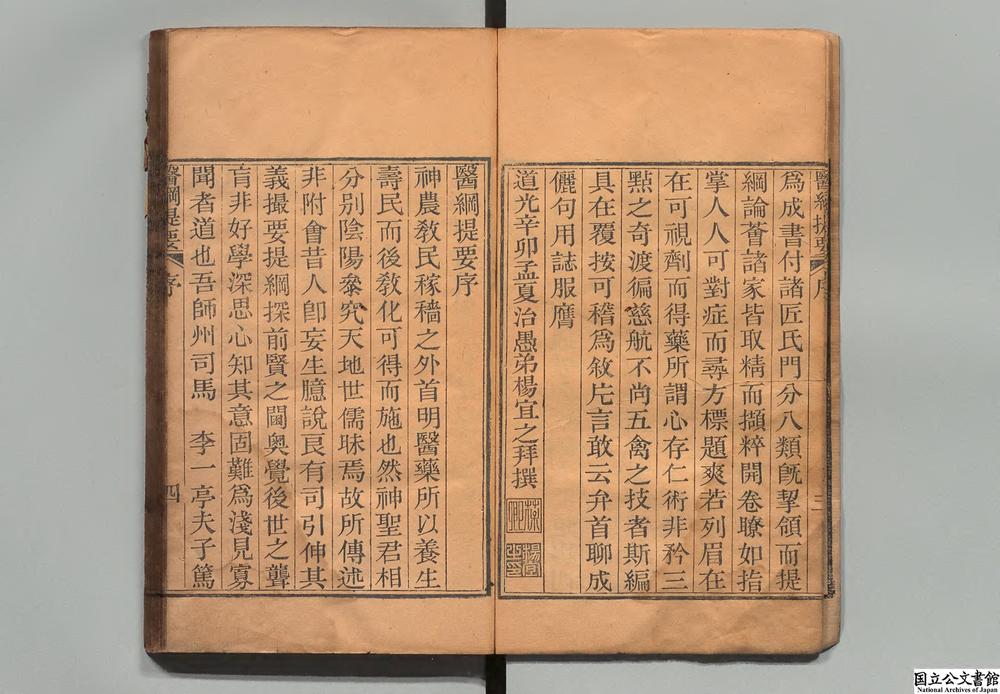 醫綱提要 序
爲成書付諸匠氏門分八類旣挈領而提
綱論薈諸家皆取精而擷粹開卷瞭如指
掌人人可對症而尋方標題爽若列眉在
在可視劑而得藥所謂心存仁術非矜三
㸃之奇渡徧慈航不尚五禽之技者斯編
具在覆按可稽爲敘片言敢云弁首聊成
儷句用誌服膺
道光辛卯孟夏治愚弟楊宜之拜撰
醫綱提要序
神農敎民稼穡之外首明醫藥所以養生
壽民而後敎化可得而施也然神聖君相
分别陰陽叅究天地世儒昧焉故所傳述
非附會昔人卽妄生臆說艮有司引伸其
義撮要提綱探前賢之閫奧覺後世之聾
肓非好學深思心知其意固難爲淺見寡
聞者道也吾師州司馬 李一亭夫子篤
醫綱提要 序 四
国立公文書館
National Archives of Japan